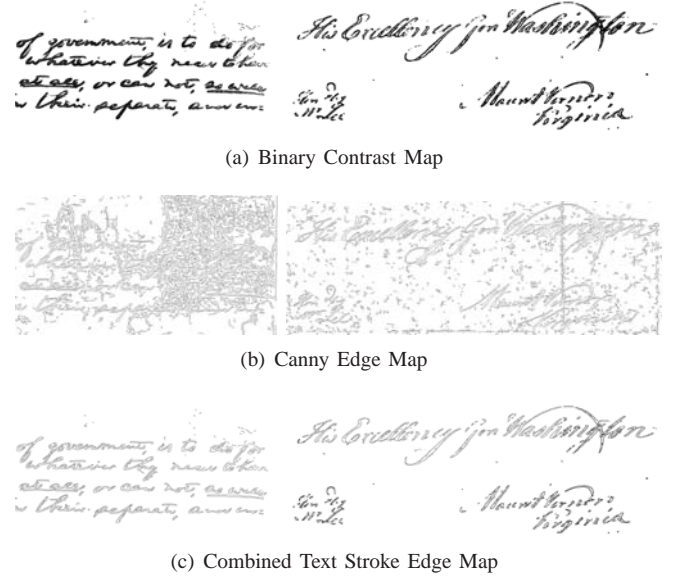 of government, is to do for
whatever they need to have
at all, or can not, so well
n their separate, and in=
His Excellency Gen Washington
Mount Vernon
Virginia
(a) Binary Contrast Map
(b) Canny Edge Map
His Excellency Gen Washington
Mount Vernon
Virginia
of government, is to do for
whatever they need to have
at all, or can not, so well
n their separate, and in=
His Excellency Gen Washington
Mount Vernon
Virginia
(c) Combined Text Stroke Edge Map